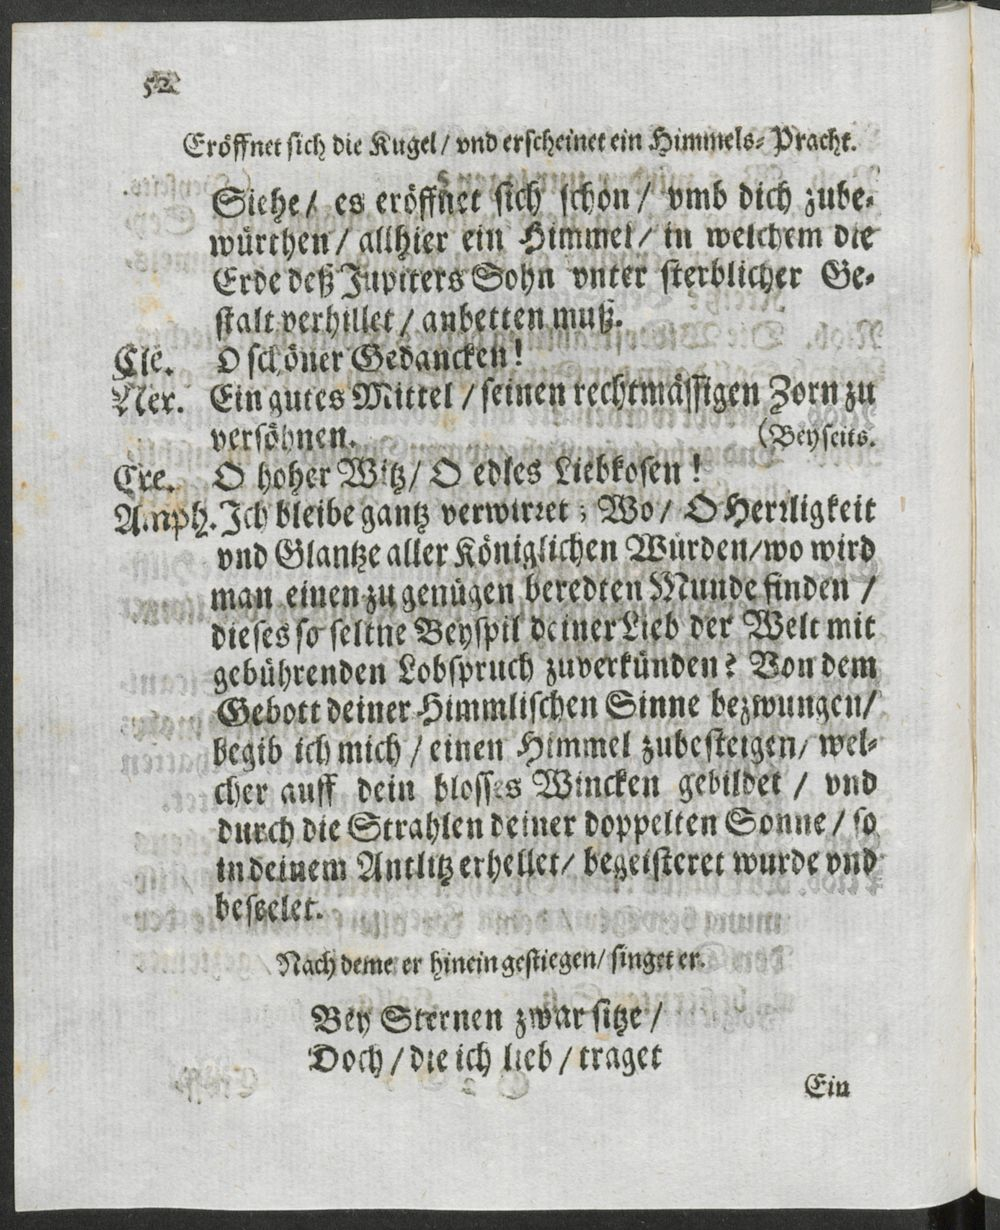 52
Eröffnet sich die Kugel / vnd erscheinet ein Himmels-Pracht.
Siehe / es eröffnet sich schon / vmb dich zube-
würthen / allhier ein Himmel / in welchem die
Erde deß Jupiters Sohn vnter sterblicher Ge-
stalt verhillet / anbetten muß.
Cle. O schöner Gedancken!
Ner. Ein gutes Mittel / seinen rechtmässigen Zorn zu
versöhnen. (Beyseits.
Cre. O hoher Witz / O edles Liebkosen!
Amph. Ich bleibe gantz verwirret; Wo / O Herrligkeit
vnd Glantze aller Königlichen Würden / wo wird
man einen zu genügen beredten Munde finden /
dieses so seltne Beyspil deiner Lieb der Welt mit
gebührenden Lobspruch zuverkünden? Von dem
Gebott deiner Himmlischen Sinne bezwungen /
begib ich mich / einen Himmel zubesteigen / wel-
cher auff dein blosses Wincken gebildet / vnd
durch die Strahlen deiner doppelten Sonne / so
in deinem Antlitz erhellet / begeisteret wurde vnd
beseelet.
Nach deme er hinein gestiegen / singet er.
Bey Sternen zwar sitze /
Doch / die ich lieb / traget
Ein